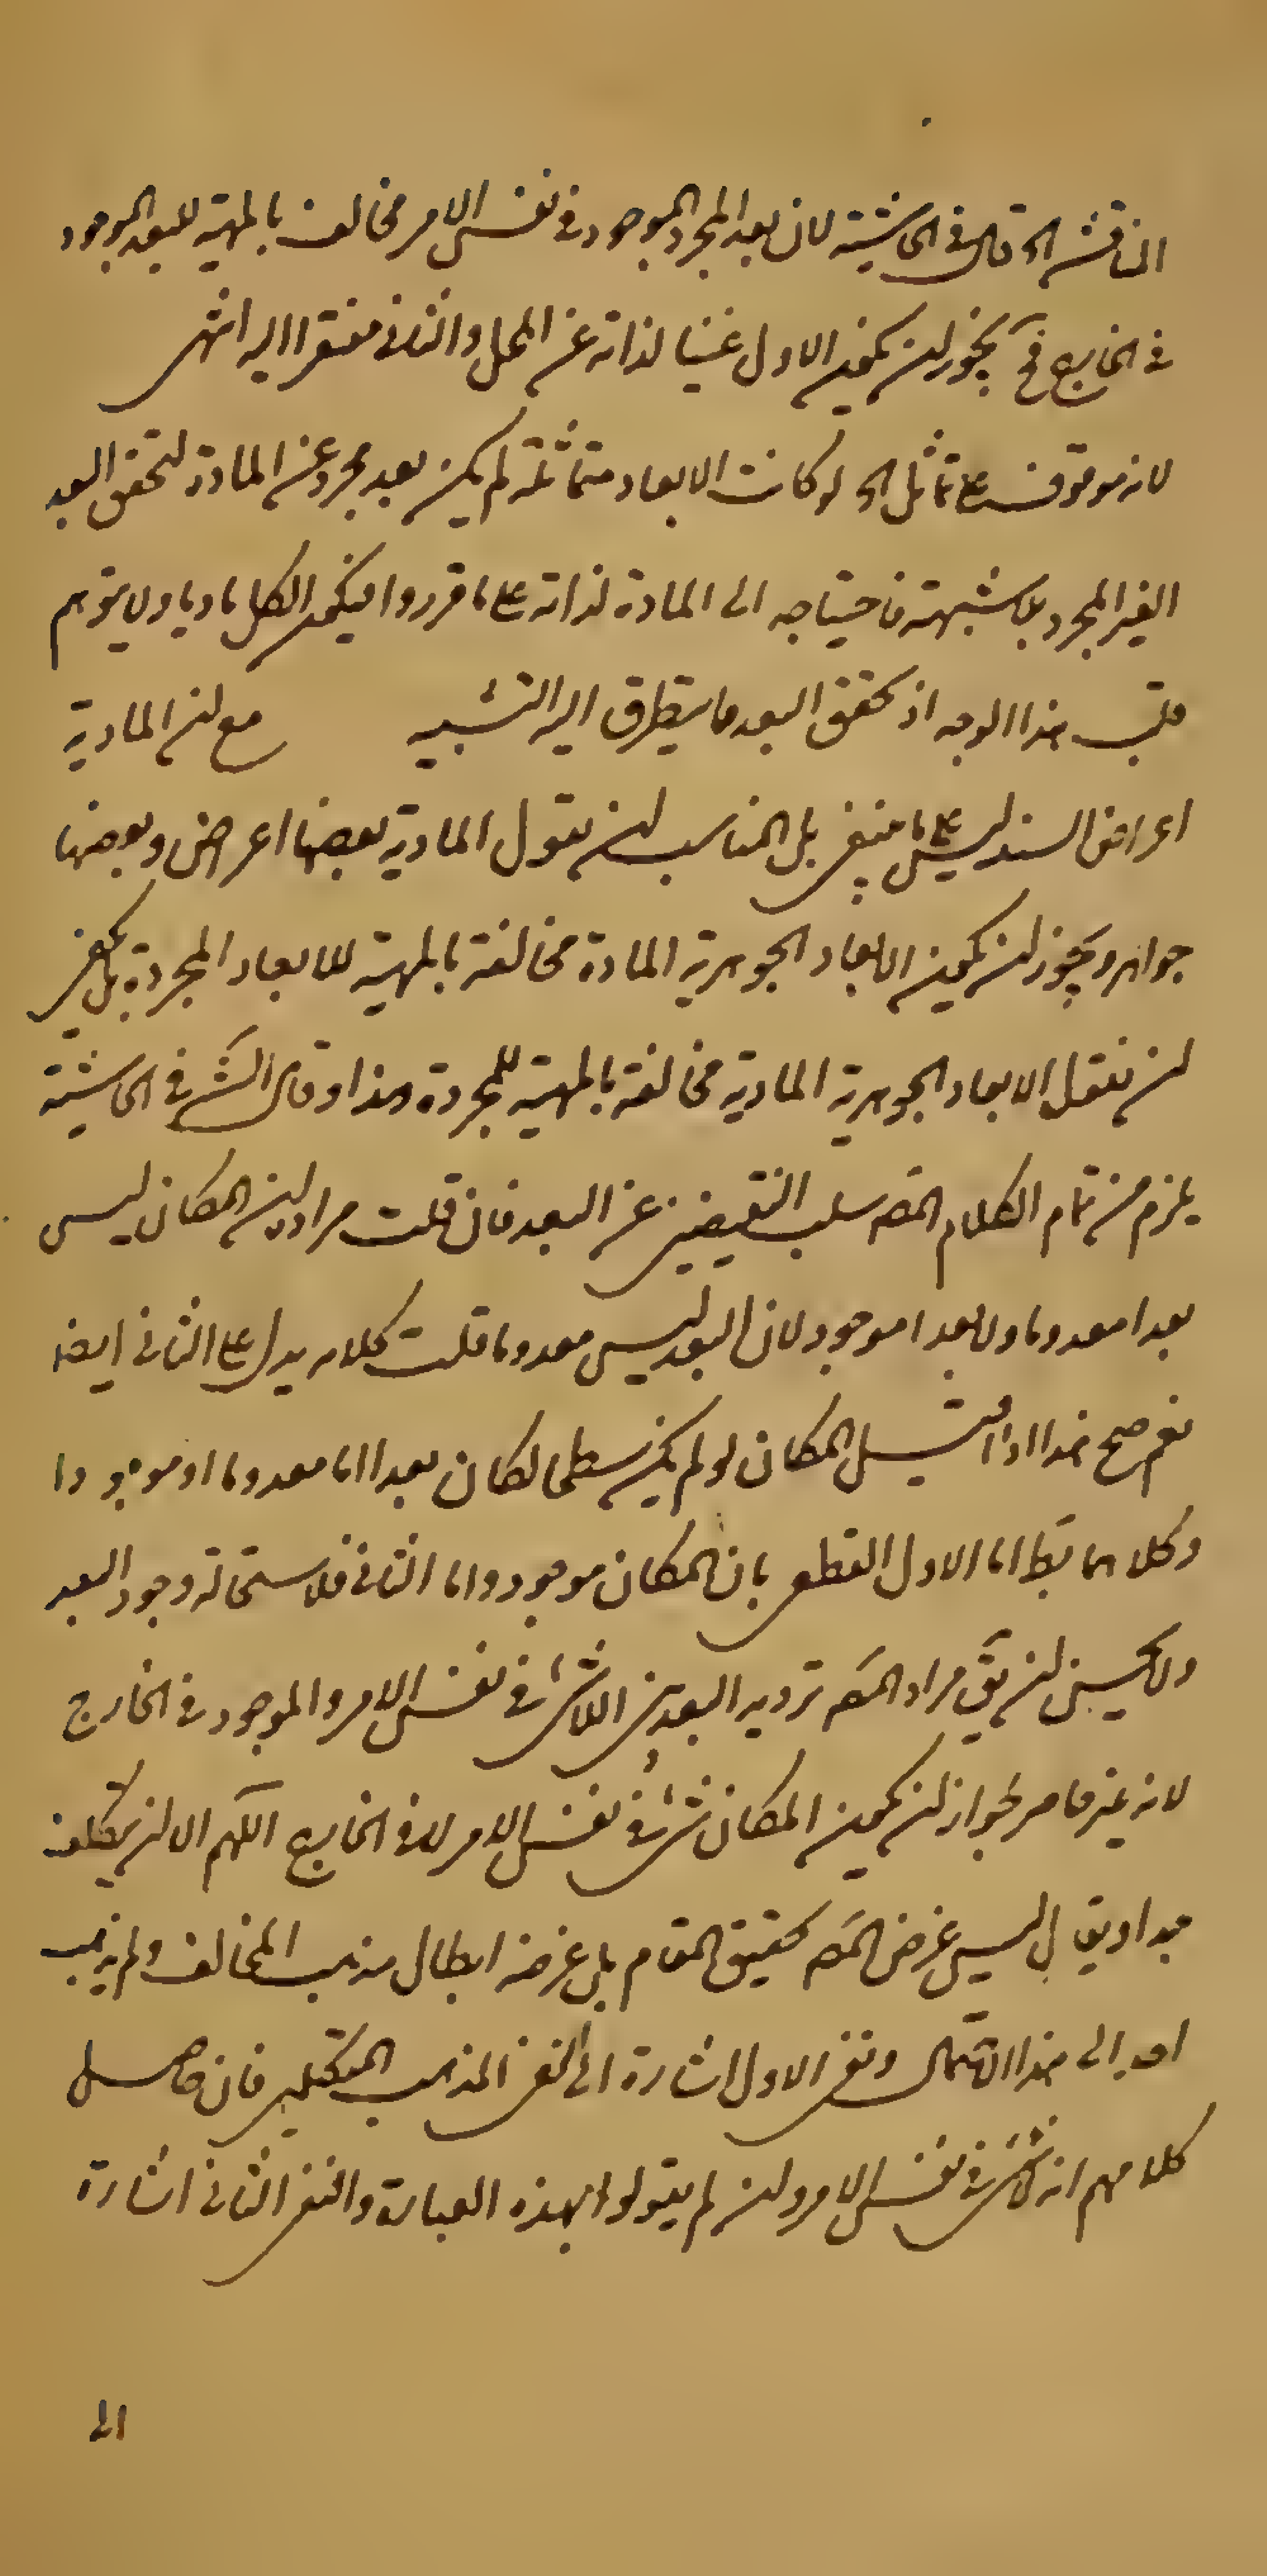 المناقشه الخ قال فى الحاشيته لان بعد المجرد الموجود فى نفس الامر مخالف بالمهية للبعد الموجود
فى الخارج فح يجوز ان يكون الاول غنيا لذاته عن المحل والثانى مفتقرا اليه انتهى
لانه موقوف على تماثل الخ لو كانت الابعاد متماثلة لم يكن بعد مجرد عن المادة لتحقق البعد
الغير المجرد بلا شبهته فاحتياجه الى المادة لذاته على ما قرروا فيكون الكل ماديا ولا يتوهم
قلب هذا الوجه اذ تحقق البعد ما يتطرق اليه التشبيه مع ان المادية
اعراض السند ليس على ما ينبغى بل المناسب ان يقول المادية بعضها اعراض وبعضها
جواهر ويجوز ان يكون الابعاد الجوهرية المادة مخالفة بالمهية للابعاد المجردة بل يكفى
ان نقول الابعاد الجوهرية المادية مخالفة بالمهية للمجردة هذا وقال الش فى الحاشيته
يلزم من تمام الكلام المص سلب النقيضين عن البعد فان قلت مراد ان المكان ليس
بعدا معدوما ولا بعدا موجود لان البعد ليس معدوما قلت كلامه يدل على الثانى ايضا
نعم صح هذا اذا قيل المكان لو لم يكن سطحا لكان بعدا اما معدوما او موجودا
وكلاهما بط اما الاول القطعى بان المكان موجود واما الثانى فلاستحالة وجود البعد
ولا يحسن ان يق مراد المص ترديد البعد بين اللاشئ فى نفس الامر والموجود فى الخارج
لانه غير حاصر لجواز ان يكون المكان شئ فى نفس الامر لا فى الخارج اللهم الا ان يتكلف
ويقال ليس غرض المص تحقيق المقام بل غرضه ابطال مذهب المخالف ولم يذهب
احد الى هذا الاحتمال ونفى الاول اشارة الى نفى المذهب المتكلمين فان حاصل
كلامهم انه لاشئ فى نفس الامر وان لم يقولوا بهذه العبارة والنفى الثانى اشارة
الى